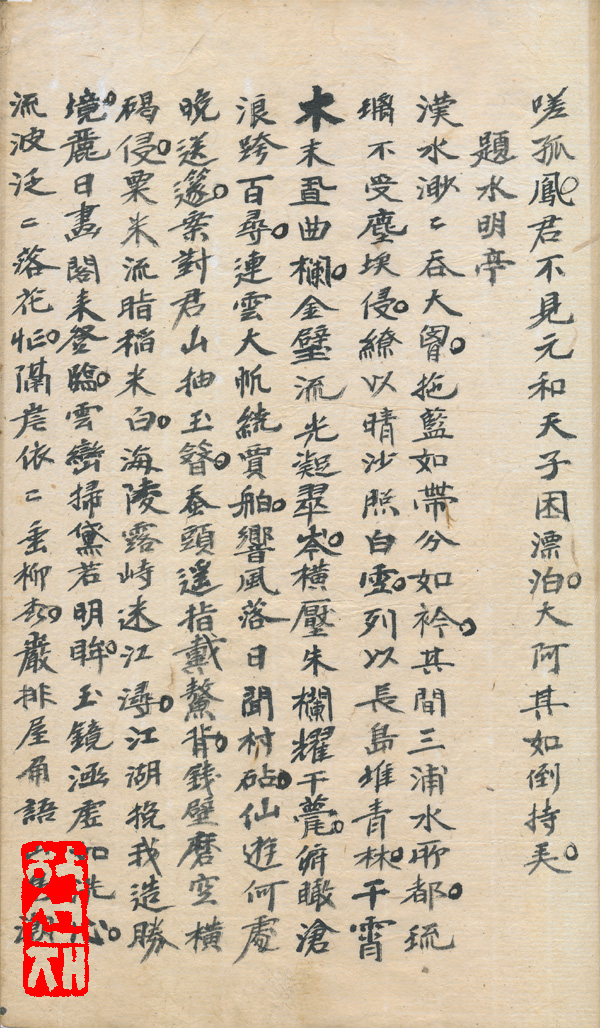 嗟孤鳳君不見元和天子困漂泊大阿其如倒持
題水明亭
漢水渺〻吞大拖藍如帶分如衿其間三浦水所都琉
璃不受塵埃侵繚以晴沙照白雪列以長島堆青林干霄
木末置曲欄金壁流光凝翠岑橫壓朱欄耀干甍俯瞰滄
浪跨百尋連雲大帆繞賈舶響風落日聞村砧仙遊何處
晚送邃案對君山抽玉簪蚕頭遙指戴鰲背錢壁磨空橫
碣侵粟米流脂稻米白海陵露峙迷江潯江湖挽我造勝
境麗日畫閣来登臨雲巒掃黛若明眸玉鏡涵虛如洗心
流波泛〻落花忙隔岸依〻垂柳森嚴排屋角語潮
한선재